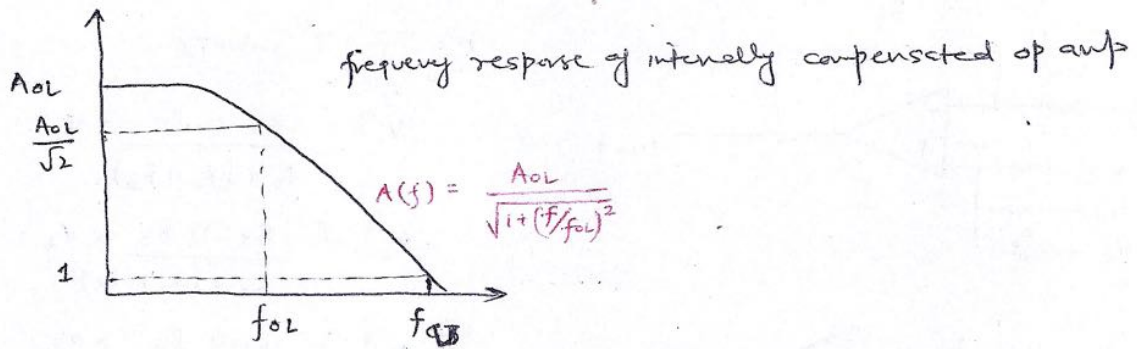 frequency response of internally compensated op amp
AOL
AOL/√2
A(f) = AOL/√(1+(f/fOL)²)
1
fOL